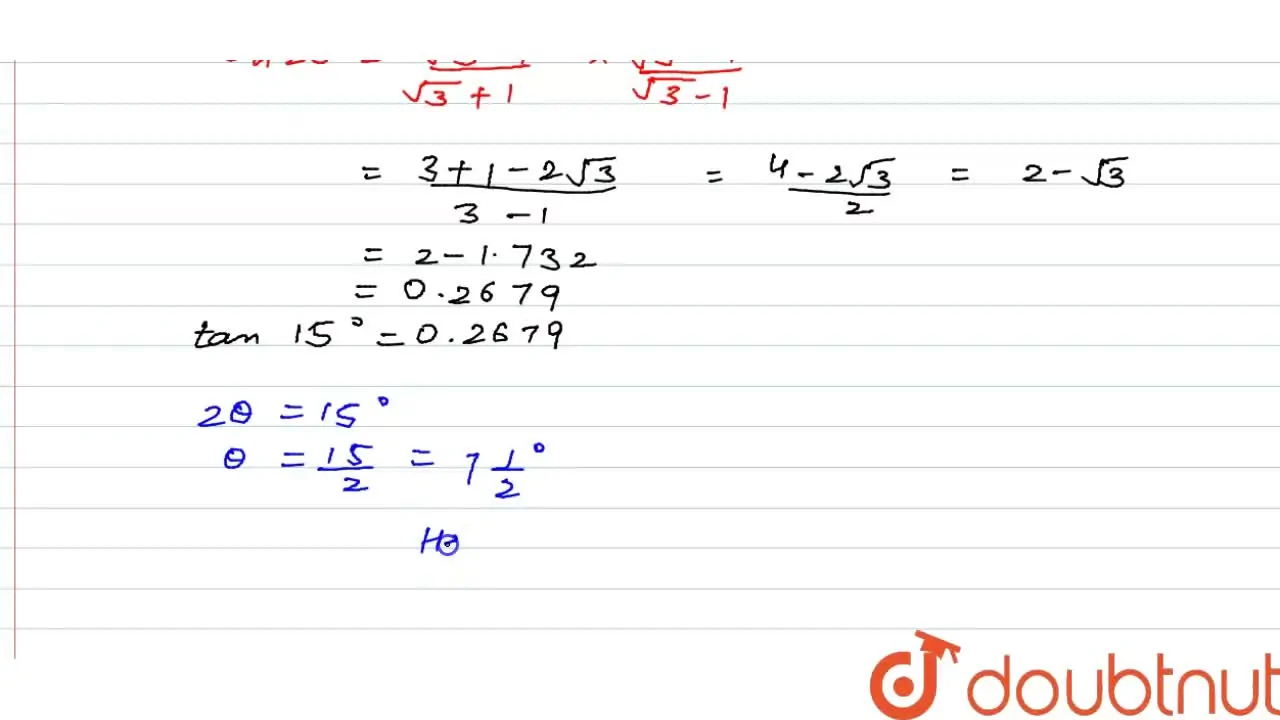 √3 + 1 √3 - 1
= 3 + 1 - 2√3 / 3 - 1 = 4 - 2√3 / 2 = 2 - √3
= 2 - 1.732
= 0.2679
tan 15° = 0.2679
2θ = 15°
θ = 15/2 = 7 1/2°
doubtnut